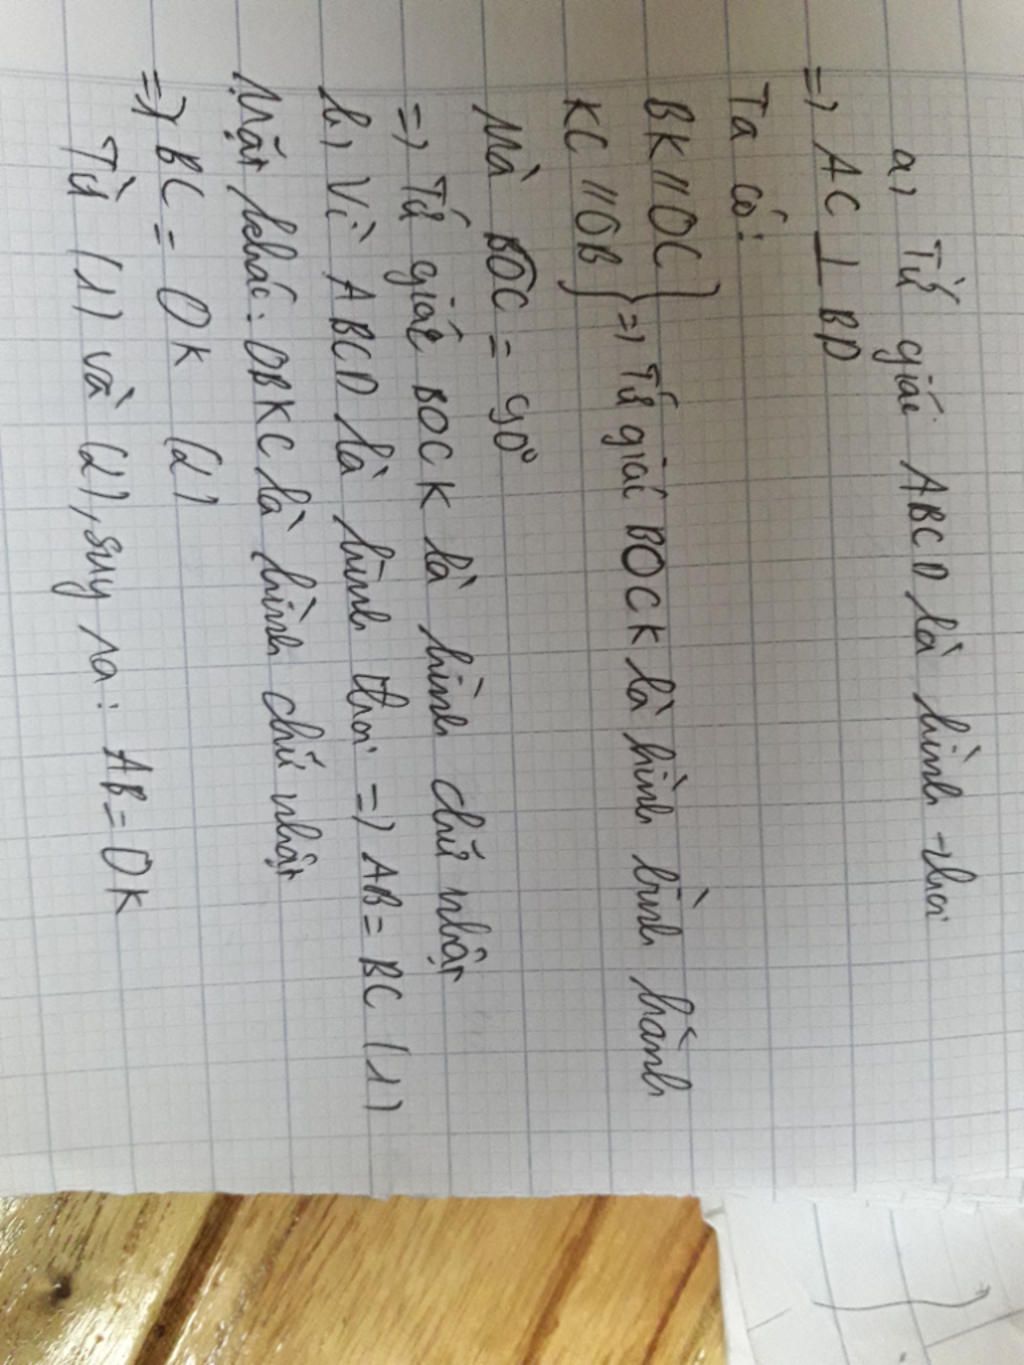 a, Tứ giác ABCD là hình thoi
=> AC ⊥ BD
Ta có:
BK // OC
KC // OB } => Tứ giác BOCK là hình bình hành
Mà BOC = 90°
=> Tứ giác BOCK là hình chữ nhật
b, Vì ABCD là hình thoi => AB = BC (1)
Mặt khác: OBKC là hình chữ nhật
=> BC = OK (2)
Từ (1) và (2), suy ra: AB = OK